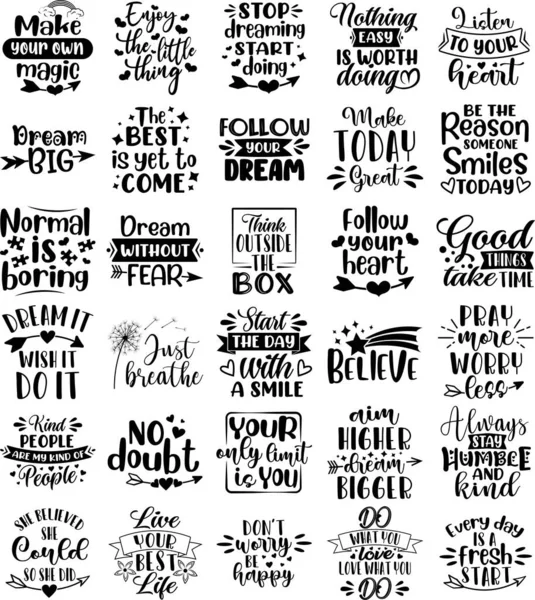 Make
your own
magic
Enjoy
the little
thing
STOP
dreaming
START
doing
Nothing
EASY
IS WORTH
doing
Listen
TO YOUR
heart
Dream
BIG
The
BEST
is yet to
COME
FOLLOW
YOUR
DREAM
Make
TODAY
Great
BE THE
Reason
SOMEONE
Smiles
TODAY
Normal
is
boring
Dream
WITHOUT
FEAR
Think
OUTSIDE
THE
BOX
Follow
your
heart
Good
THINGS
take TIME
DREAM IT
WISH IT
DO IT
Just
breathe
Start
THE DAY
with
A SMILE
BELIEVE
PRAY
more
WORRY
less
Kind
PEOPLE
ARE MY KIND OF
People
NO
doubt
YOUR
only limit
is YOU
aim
HIGHER
dream
BIGGER
Always
STAY
HUMBLE
AND
kind
SHE BELIEVED
SHE
Could
SO SHE DID
Live
YOUR
BEST
Life
DON'T
worry
BE
happy
DO
WHAT YOU
love
LOVE WHAT YOU
DO
Every day
IS A
fresh
START